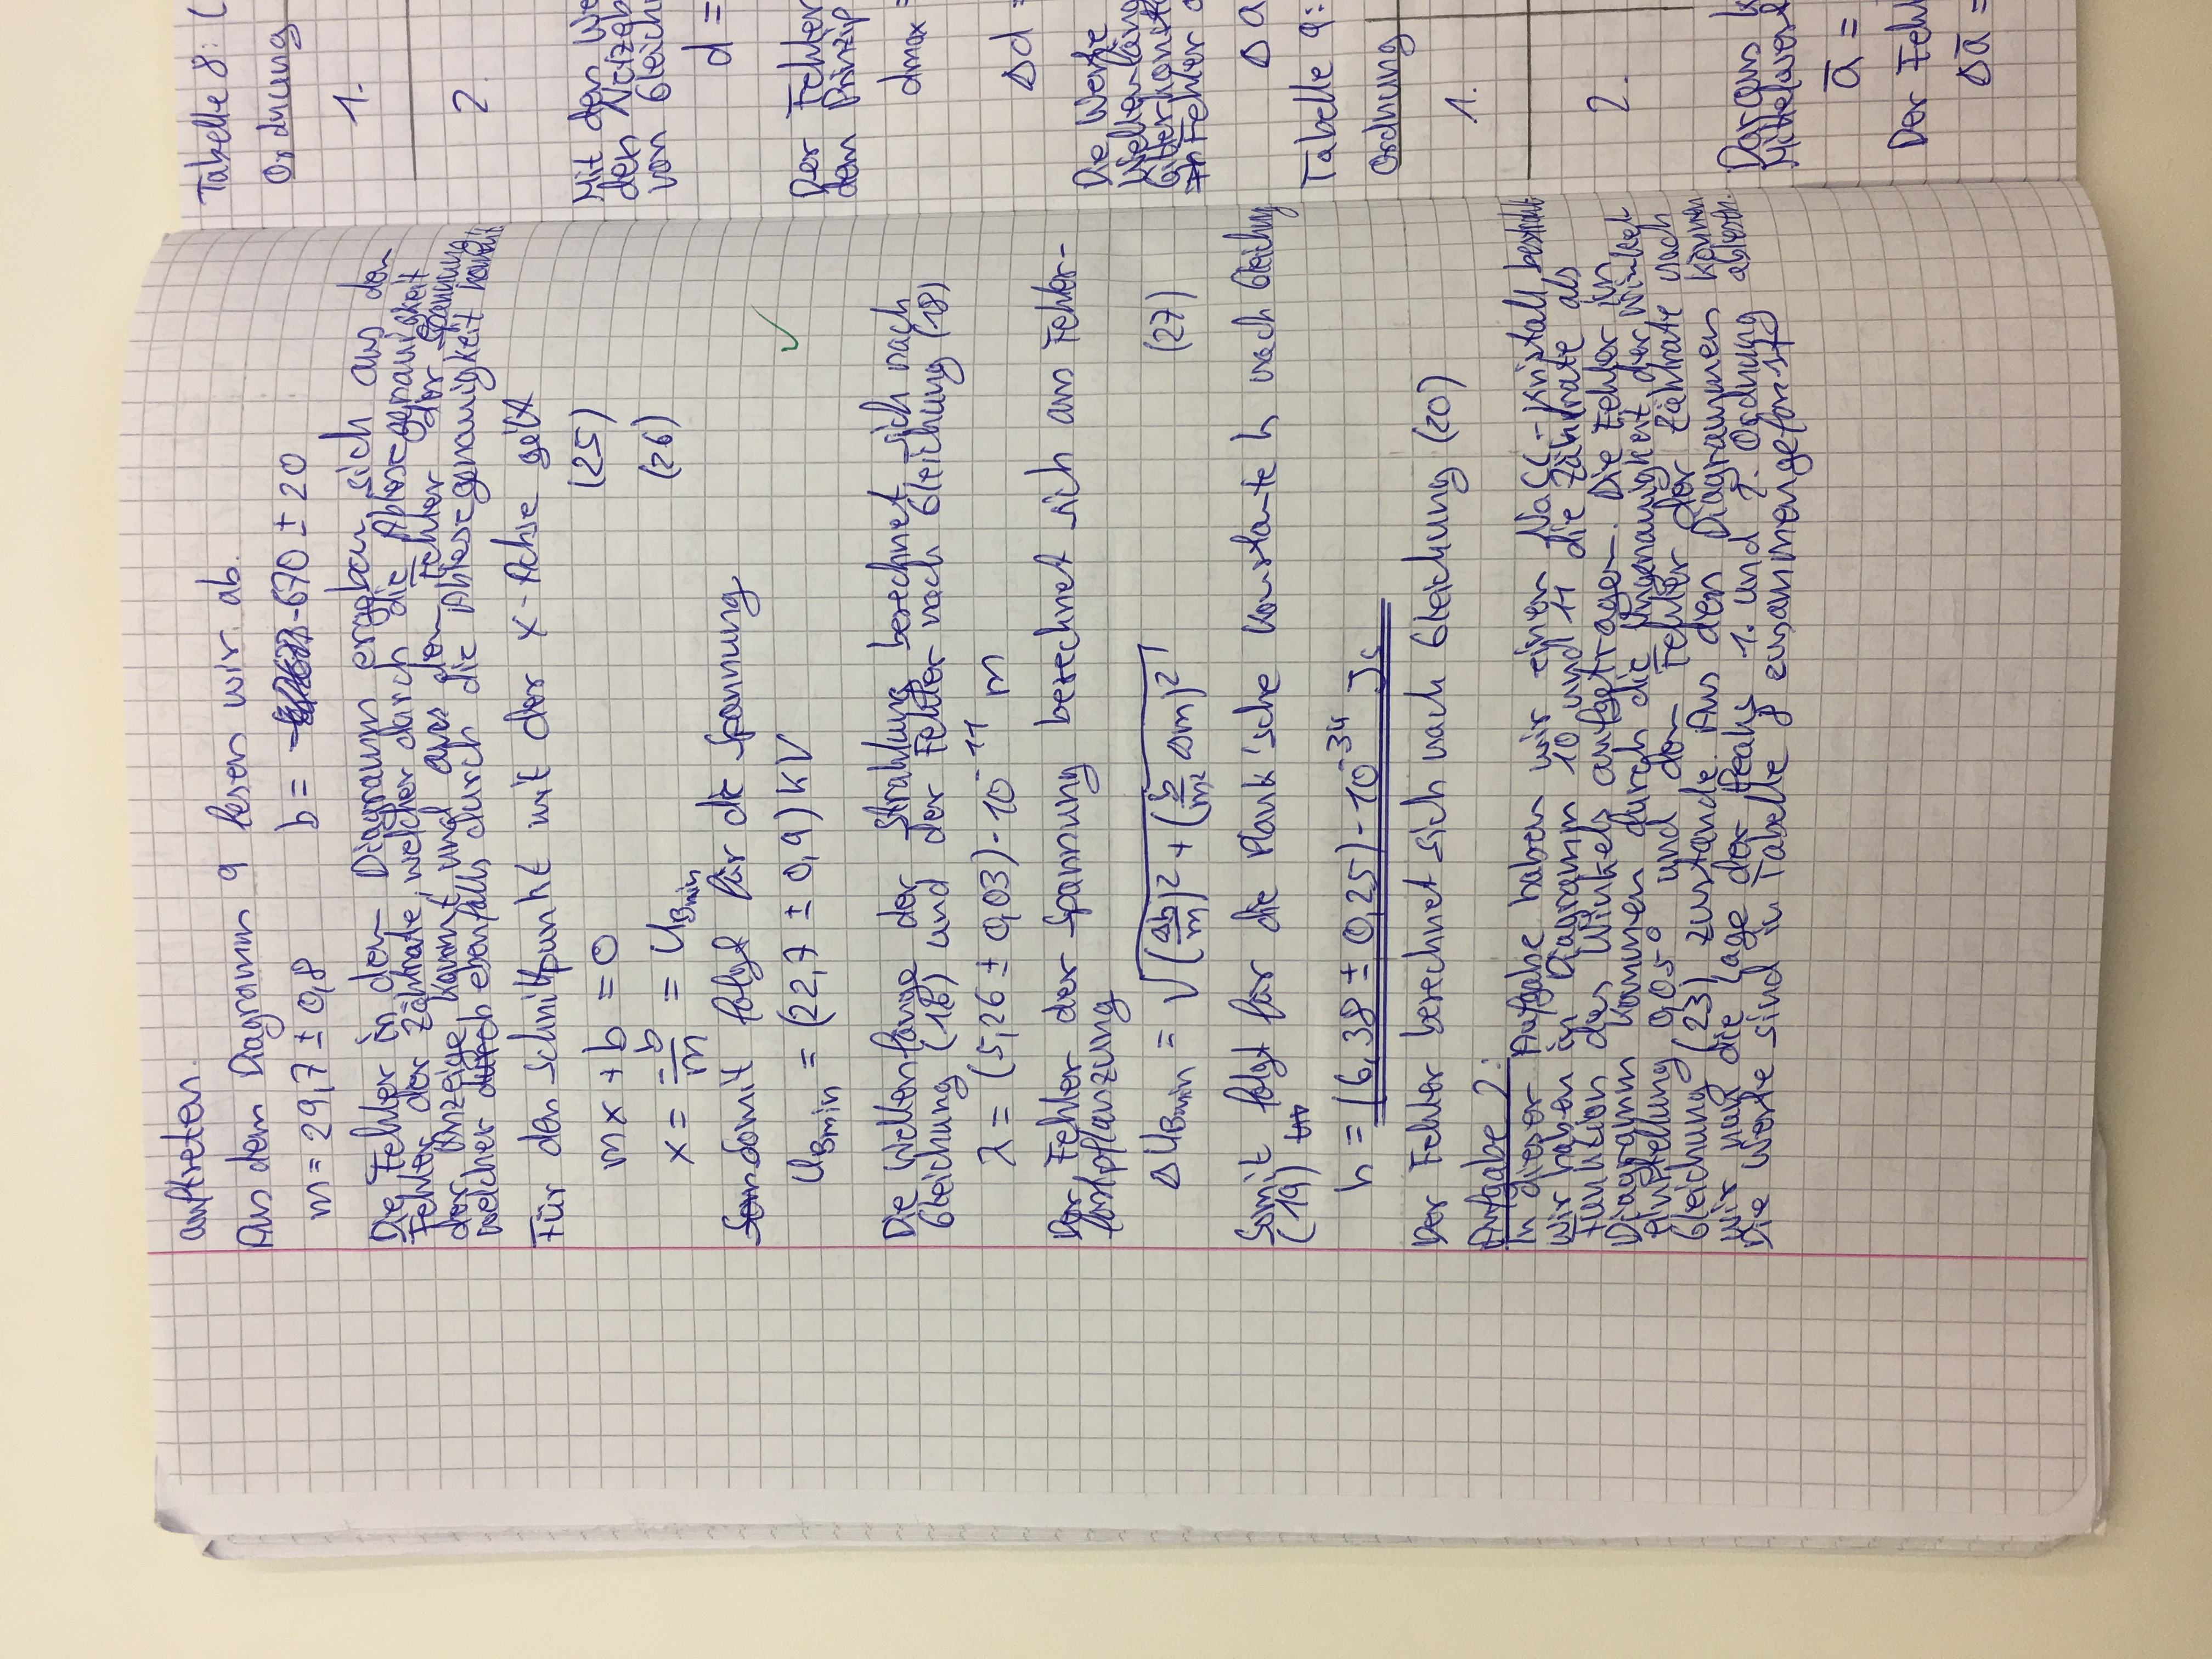 auftreten.
Aus dem Diagramm 9 lesen wir ab.
m = 29,7 ± 0,8 b = -670 ± 20
Die Fehler in dem Diagramm ergeben sich aus dem
Fehler der Zählrate, welcher durch die Ablesegenauigkeit
der Anzeige kommt und aus dem Fehler der Spannung,
welcher durch ebenfalls durch die Ablesegenauigkeit kommt.
Für den Schnittpunkt mit der x-Achse gilt
mx + b = 0 (25)
x = -b/m = U_Bmin (26)
Somit folgt für die Spannung
U_Bmin = (22,7 ± 0,9) kV ✓
Die Wellenlänge der Strahlung berechnet sich nach
Gleichung (16) und der Fehler nach Gleichung (18)
λ = (5,26 ± 0,03)·10^-11 m
Der Fehler der Spannung berechnet sich aus Fehler-
fortpflanzung
ΔU_Bmin = √((Δb/m)² + (b/m² Δm)²) (27)
Somit folgt für die Plank'sche Konstante h nach Gleichung
(19)
h = (6,38 ± 0,25)·10^-34 Js
Der Fehler berechnet sich nach Gleichung (20)
Aufgabe 2:
In dieser Aufgabe haben wir einen NaCl-Kristall bestrahlt.
Wir haben in Diagramm 10 und 11 die Zählrate als
Funktion des Winkels aufgetragen. Die Fehler im
Diagramm kommen durch die Ungenauigkeit der Winkel-
einstellung 0,05° und dem Fehler der Zählrate nach
Gleichung (23) zustande. Aus den Diagrammen können
wir nun die Lage der Peaks 1. und 2. Ordnung ablesen.
Die Werte sind in Tabelle 8 zusammengefasst
Tabelle 8: (
Ordnung
1.
2.
Mit den
den
von
d =
Der Fehler
dem Prinzip
dmax
Δd =
Die Werte
Fehler
Δa
Tabelle 9:
Ordnung
1.
2.
Daraus
a̅ =
Der
Δa̅ =